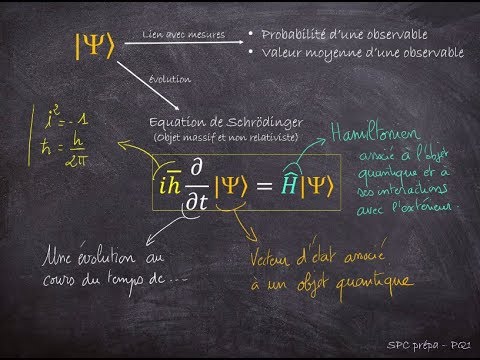 |Ψ⟩
Lien avec mesures
• Probabilité d'une observable
• Valeur moyenne d'une observable
évolution
Equation de Schrödinger
(Objet massif et non relativiste)
i² = -1
ħ = h/2π
iħ ∂/∂t |Ψ⟩ = Ĥ|Ψ⟩
Hamiltonien
associé à l'objet
quantique et à
ses interactions
avec l'extérieur.
Une évolution au
cours du temps de ...
Vecteur d'état associé
à un objet quantique
SPC prépa - PQ1